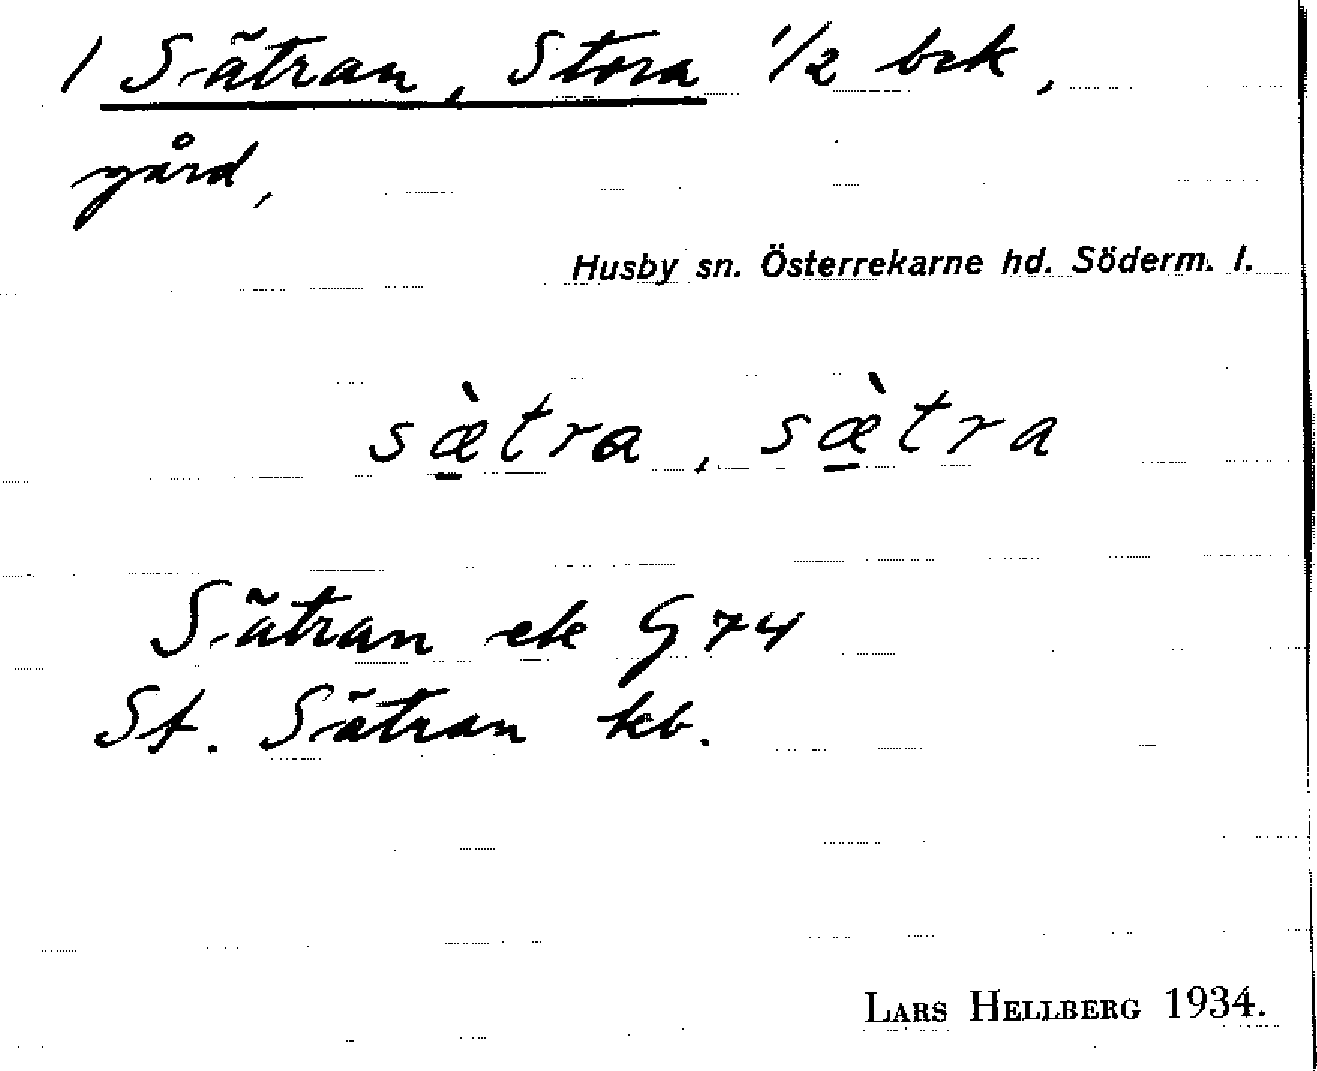 1 Sätran, Stora 1/2 brk,
gård,
Husby sn. Österrekarne hd. Söderm. l.
sæ̀tra, sæ̀tra
Sätran ek G 74
St. Sätran kb.
LARS HELLBERG 1934.